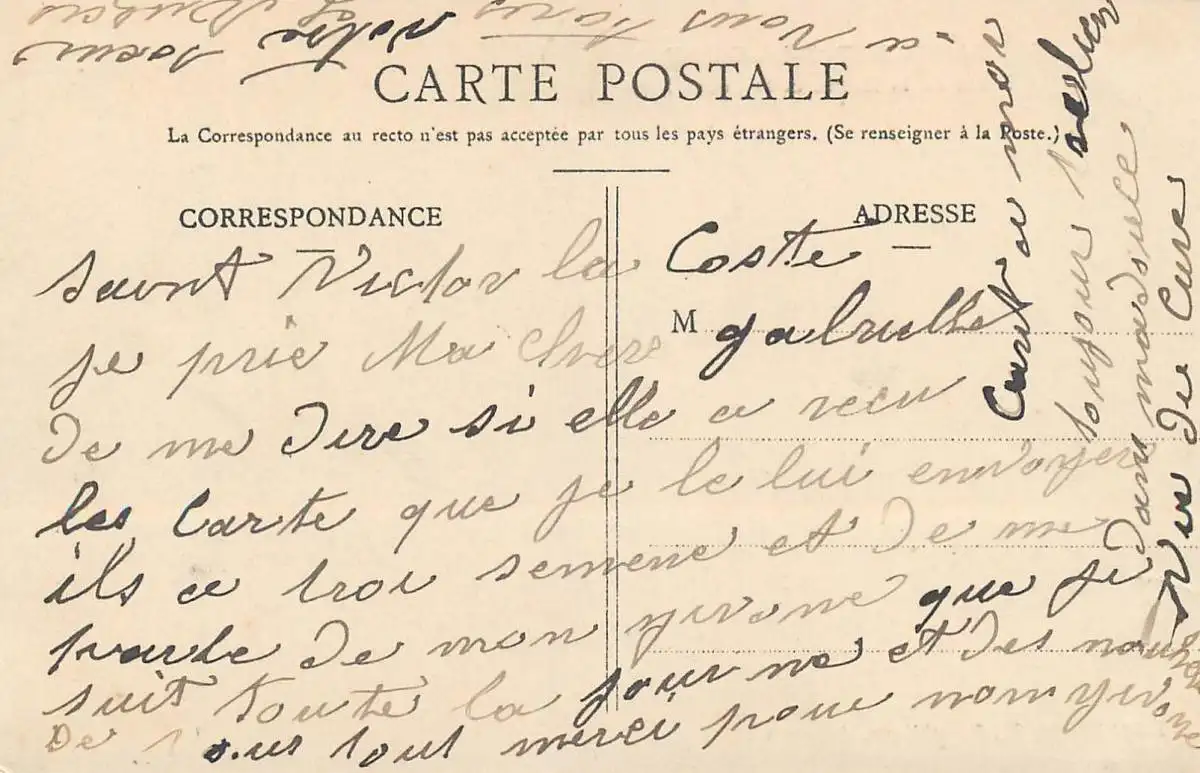 CARTE POSTALE
La Correspondance au recto n'est pas acceptée par tous les pays étrangers. (Se renseigner à la Poste.)
CORRESPONDANCE
ADRESSE
M
saint Victor la Coste
je prie Ma Chere gabrielle
De me Dire si elle a recu
les Carte que je le lui envoyer
ils a troi semene et De me
parle De mon yvone que je
suit toute la journe et Des nouvelle
De tous tout merci pour mon yvone
Rue Du Cure
toujour
a vous
votre soeur